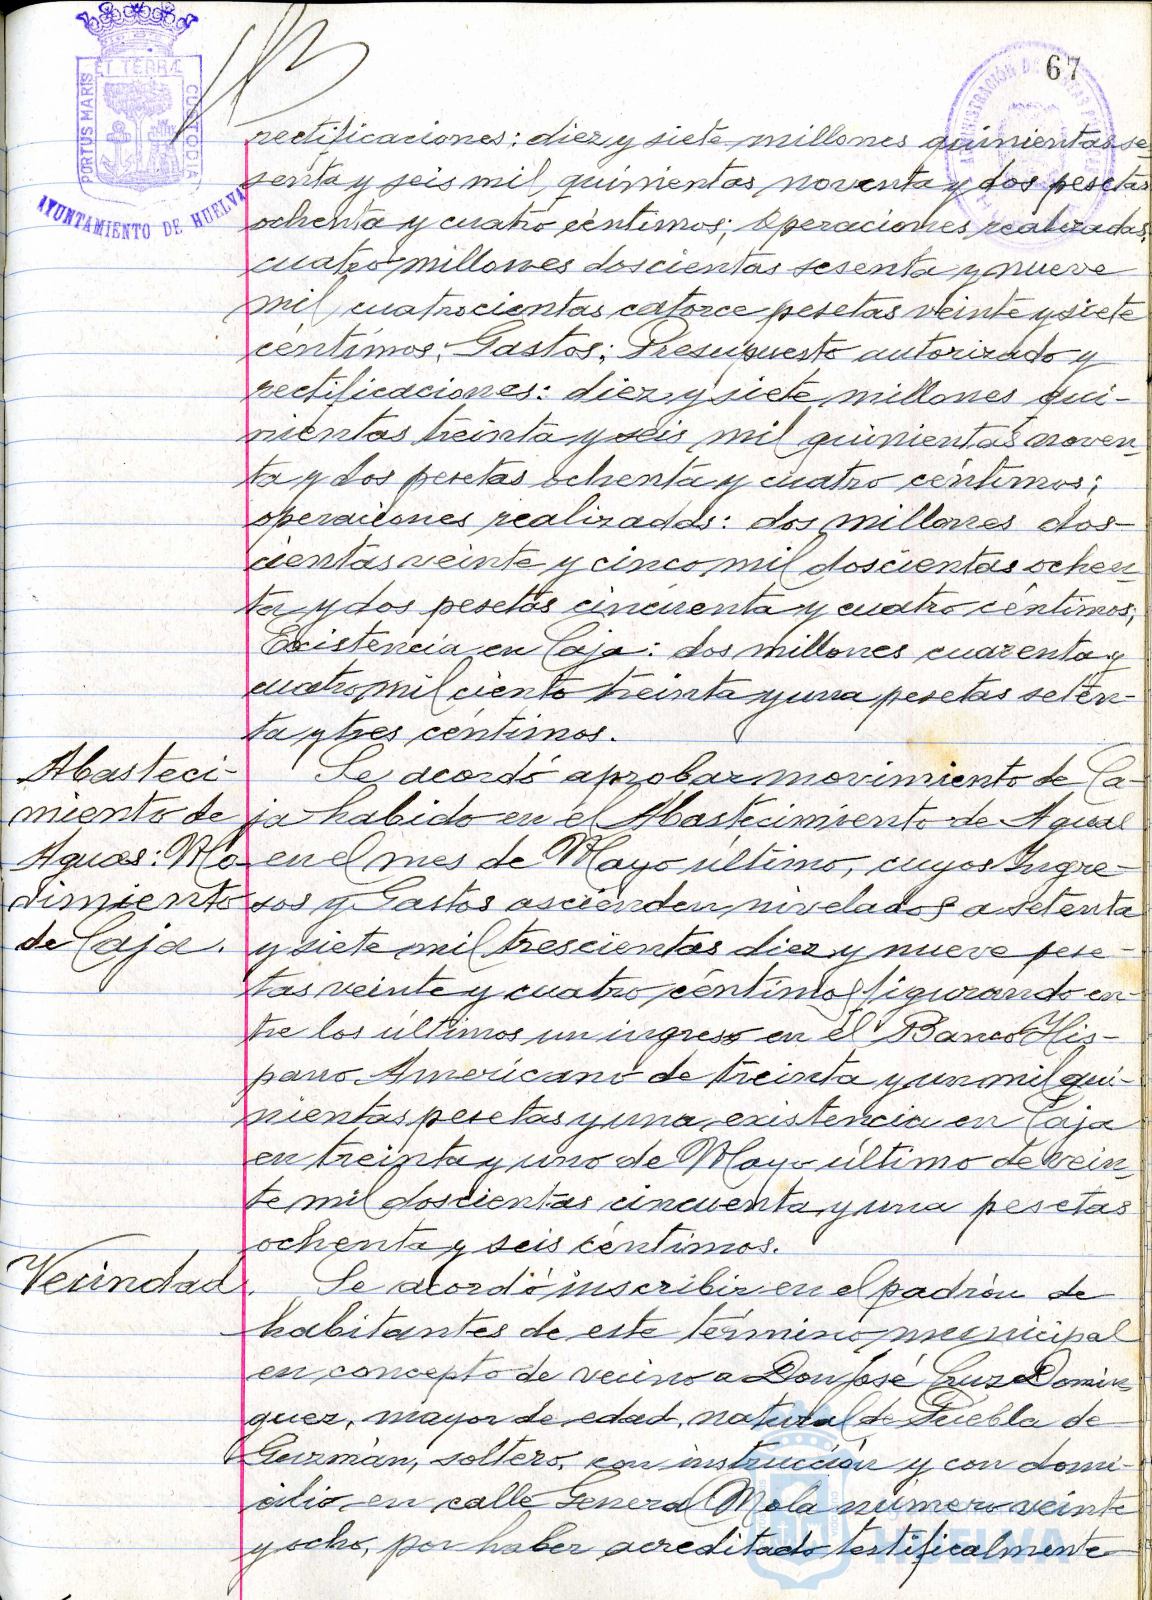 67
PORTUS MARIS ET TERRÆ CUSTODIA
AYUNTAMIENTO DE HUELVA
rectificaciones: diez y siete millones quinientas se-
senta y seis mil, quinientas noventa y dos pesetas
ochenta y cuatro céntimos; Operaciones realizadas,
cuatro millones doscientas sesenta y nueve
mil cuatrocientas catorce pesetas veinte y siete
céntimos; Gastos; Presupuesto autorizado y
rectificaciones: diez y siete millones qui-
nientas treinta y seis mil quinientas noven-
ta y dos pesetas ochenta y cuatro céntimos;
operaciones realizadas: dos millones dos-
cientas veinte y cinco mil doscientas ochen-
ta y dos pesetas cincuenta y cuatro céntimos;
Existencia en Caja: dos millones cuarenta y
cuatro mil ciento treinta y una pesetas seten-
ta y tres céntimos.
Abasteci-
miento de
Aguas: Mo-
vimiento
de Caja.
Se acordó aprobar movimiento de Ca-
ja habido en el Abastecimiento de Aguas
en el mes de Mayo último, cuyos Ingre-
sos y Gastos ascienden nivelados a setenta
y siete mil trescientas diez y nueve pese-
tas veinte y cuatro céntimos figurando en-
tre los últimos un ingreso en el Banco His-
pano Américano de treinta y un mil qui-
nientas pesetas y una existencia en Caja
en treinta y uno de Mayo último de vein-
te mil doscientas cincuenta y una pesetas
ochenta y seis céntimos.
Vecindad.
Se acordó inscribir en el padrón de
habitantes de este término municipal
en concepto de vecino a Don José Cruz Domin-
guez, mayor de edad, natural de Puebla de
Guzmán, soltero, con instrucción y con domi-
cilio en calle General Mola número veinte
y ocho, por haber acreditado testificalmente
HUELVA